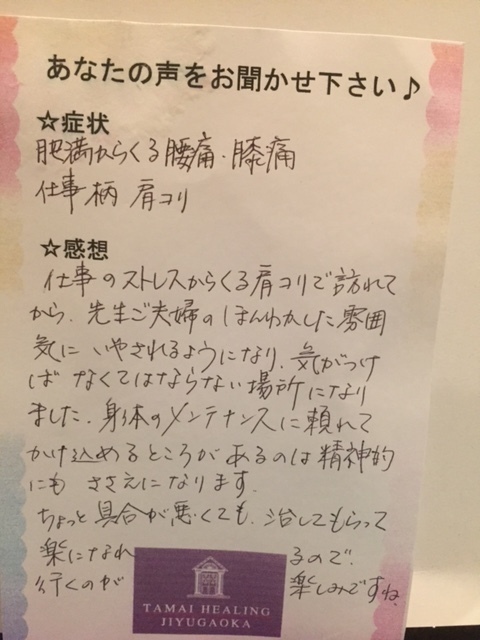 あなたの声をお聞かせ下さい♪
☆症状
肥満からくる腰痛・膝痛
仕事柄 肩コリ
☆感想
仕事のストレスからくる肩コリで訪れて
から、先生ご夫婦のほんわかした雰囲
気に いやされるようになり、気がつけ
ば なくてはならない場所になり
ました。身体のメンテナンスに頼れて
かけ込めるところがあるのは精神的
にも ささえになります。
ちょっと具合が悪くても、治してもらって
楽になれるので、
行くのが楽しみですね。
TAMAI HEALING
JIYUGAOKA